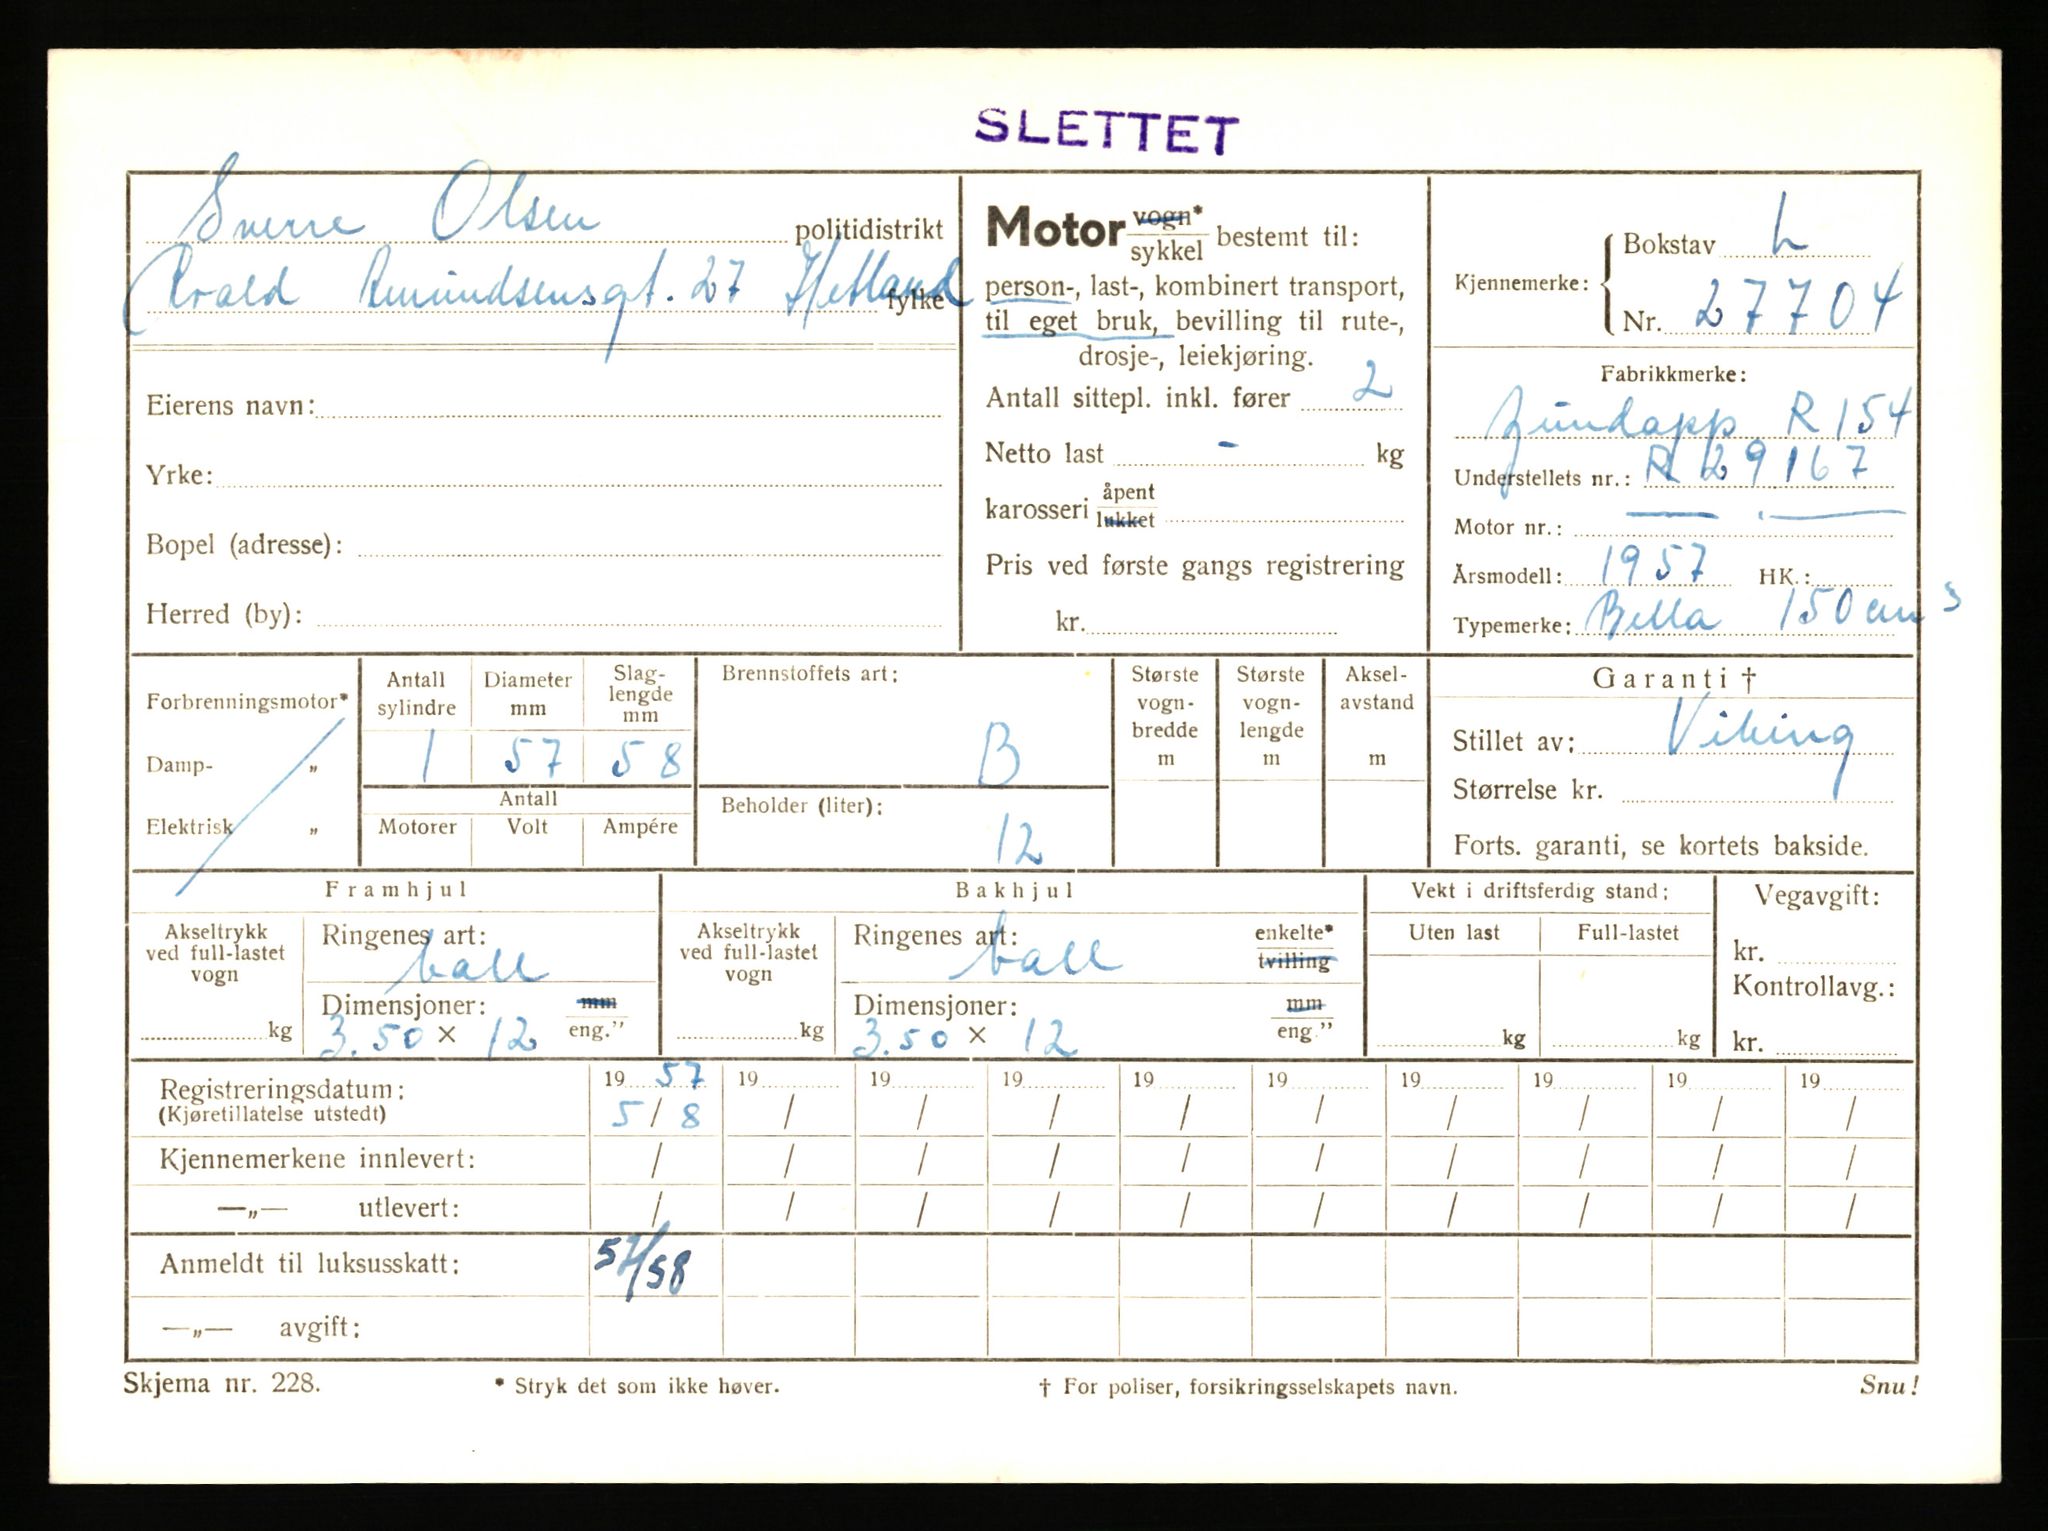 SLETTET
Sverre Olsen politidistrikt
Roald Amundsensgt. 27 Hetland fylke
Eierens navn:
Yrke:
Bopel (adresse):
Herred (by):
Motor vogn* sykkel bestemt til:
person-, last-, kombinert transport,
til eget bruk, bevilling til rute-,
drosje-, leiekjøring.
Antall sittepl. inkl. fører 2
Netto last - kg
karosseri åpent lukket
Pris ved første gangs registrering
kr.
Kjennemerke: Bokstav L
Nr. 27704
Fabrikkmerke:
Zündapp R 154
Understellets nr.: R 29167
Motor nr.:
Årsmodell: 1957 HK.:
Typemerke: Bella 150 cm3
Forbrenningsmotor*
Damp- „
Elektrisk „
Antall sylindre Diameter mm Slag-lengde mm
1 57 58
Antall
Motorer Volt Ampére
Brennstoffets art:
B
Beholder (liter):
12
Største vogn-bredde m
Største vogn-lengde m
Aksel-avstand m
Garanti †
Stillet av: Viking
Størrelse kr.
Forts. garanti, se kortets bakside.
Framhjul
Akseltrykk ved full-lastet vogn
kg
Ringenes art:
ball
Dimensjoner: mm
3.50 × 12 eng."
Bakhjul
Akseltrykk ved full-lastet vogn
kg
Ringenes art: enkelte* tvilling
ball
Dimensjoner: mm
3.50 × 12 eng."
Vekt i driftsferdig stand:
Uten last Full-lastet
kg kg
Vegavgift:
kr.
Kontrollavg.:
kr.
Registreringsdatum: 19 57 19 19 19 19 19 19 19 19 19
(Kjøretillatelse utstedt) 5/8 / / / / / / / / /
Kjennemerkene innlevert: / / / / / / / / / /
—„— utlevert: / / / / / / / / / /
Anmeldt til luksusskatt: 57/58
—„— avgift:
Skjema nr. 228. * Stryk det som ikke høver. † For poliser, forsikringsselskapets navn. Snu!